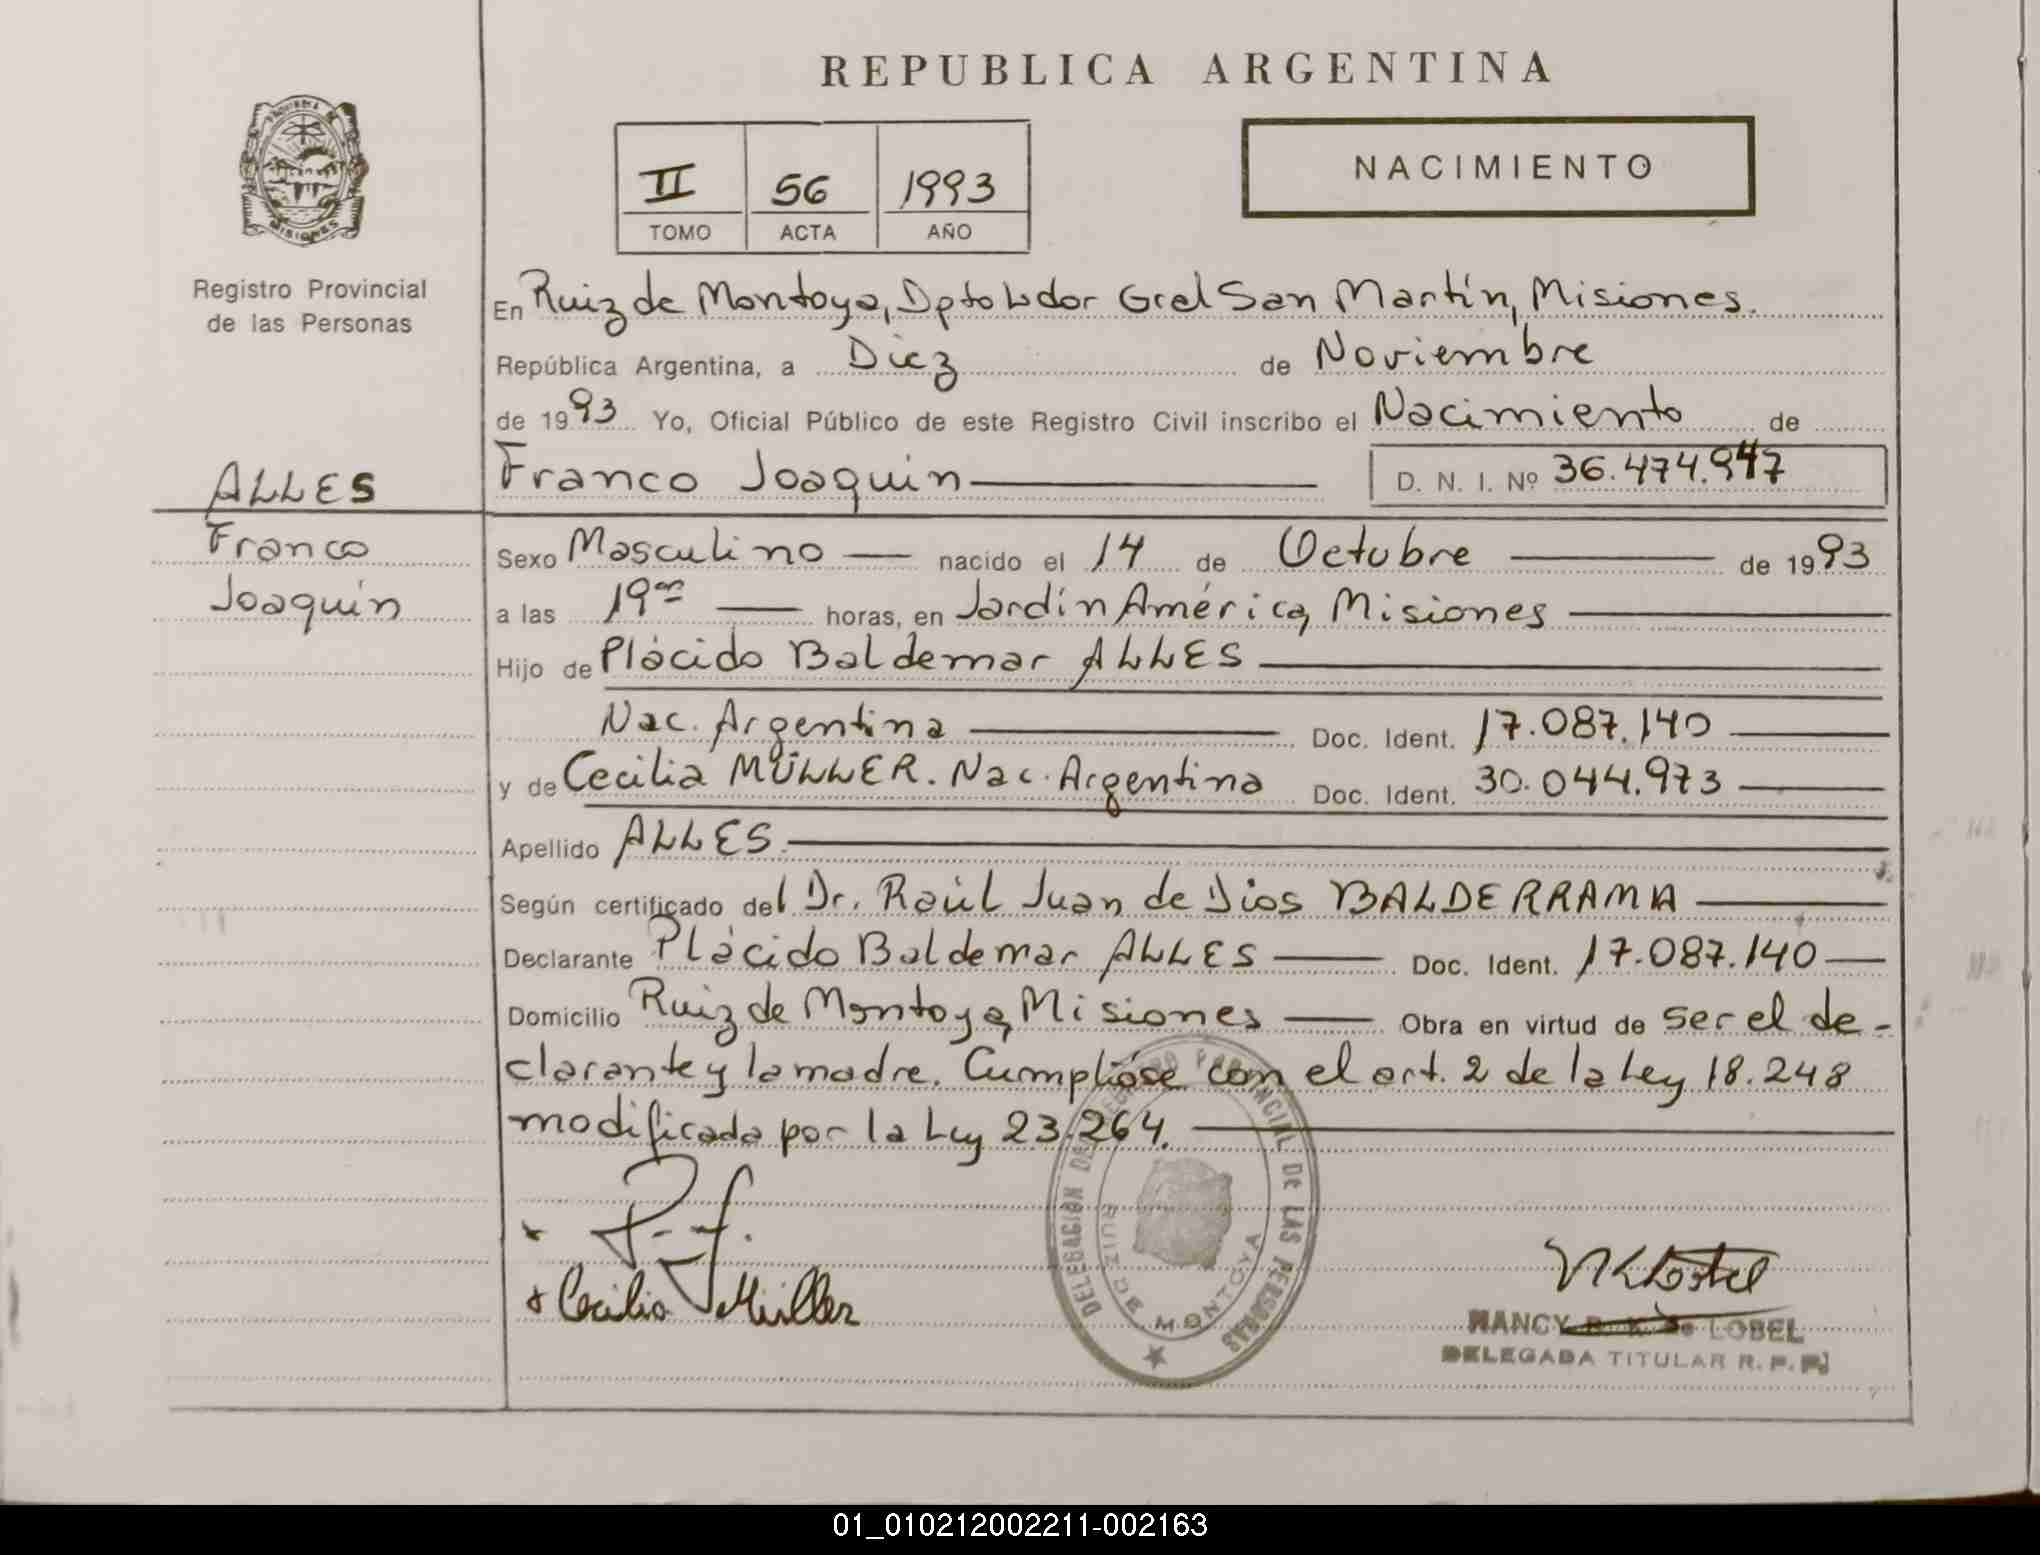 REPUBLICA ARGENTINA
NACIMIENTO
II 56 1993
TOMO ACTA AÑO
MISIONES
Registro Provincial
de las Personas
En Ruiz de Montoya, Dpto Ldor Gral San Martín, Misiones.
República Argentina, a Diez de Noviembre
de 1993 Yo, Oficial Público de este Registro Civil inscribo el Nacimiento de
Franco Joaquin D. N. I. Nº 36.474.947
ALLES
Franco
Joaquín
Sexo Masculino nacido el 14 de Octubre de 1993
a las 19 horas, en Jardín América, Misiones
Hijo de Plácido Baldemar ALLES
Nac. Argentina Doc. Ident. 17.087.140
y de Cecilia MÜLLER. Nac. Argentina Doc. Ident. 30.044.973
Apellido ALLES.
Según certificado del Dr. Raúl Juan de Dios BALDERRAMA
Declarante Plácido Baldemar ALLES Doc. Ident. 17.087.140
Domicilio Ruiz de Montoya, Misiones Obra en virtud de ser el de-
clarante y la madre. Cumplióse con el art. 2 de la Ley 18.248
modificada por la Ley 23.264.
DELEGACION DEL REGISTRO PROVINCIAL DE LAS PERSONAS
RUIZ DE MONTOYA
Cecilia Müller
NANCY de LOBEL
DELEGADA TITULAR R. P. P.
01_010212002211-002163